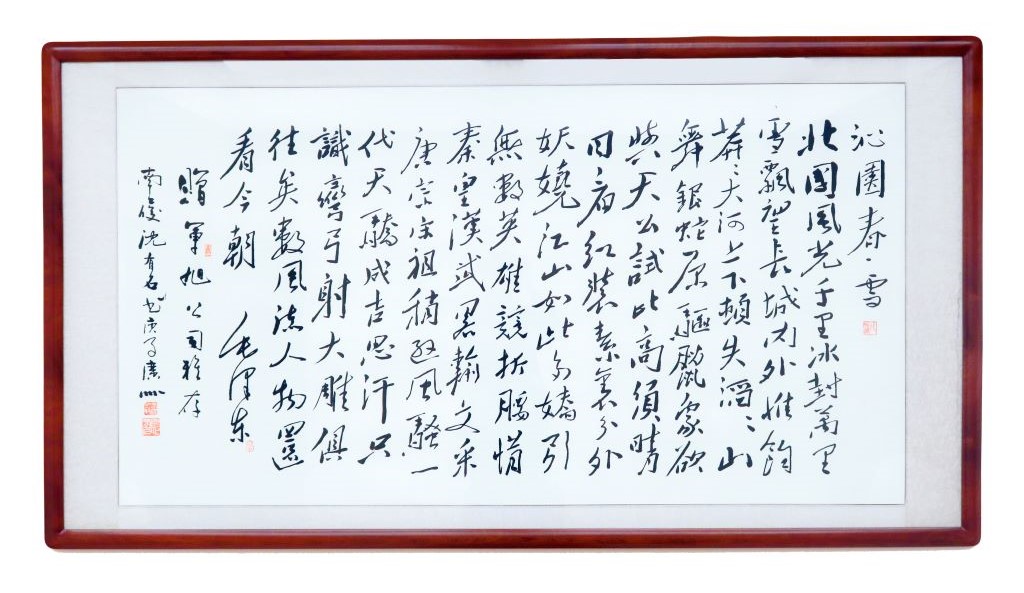 沁園春·雪
北國風光千里冰封萬里
雪飄望長城內外惟餘
莽〻大河上下頓失滔〻山
舞銀蛇原驅臘象欲
與天公試比高須晴
日看紅裝素裹分外
妖嬈江山如此多嬌引
無數英雄競折腰惜
秦皇漢武畧輸文采
唐宗宋祖稍遜風騷一
代天驕成吉思汗只
識彎弓射大雕俱
往矣數風流人物還
看今朝 毛澤東
贈軍旭公司雅存
南沈有名書庚子廣州